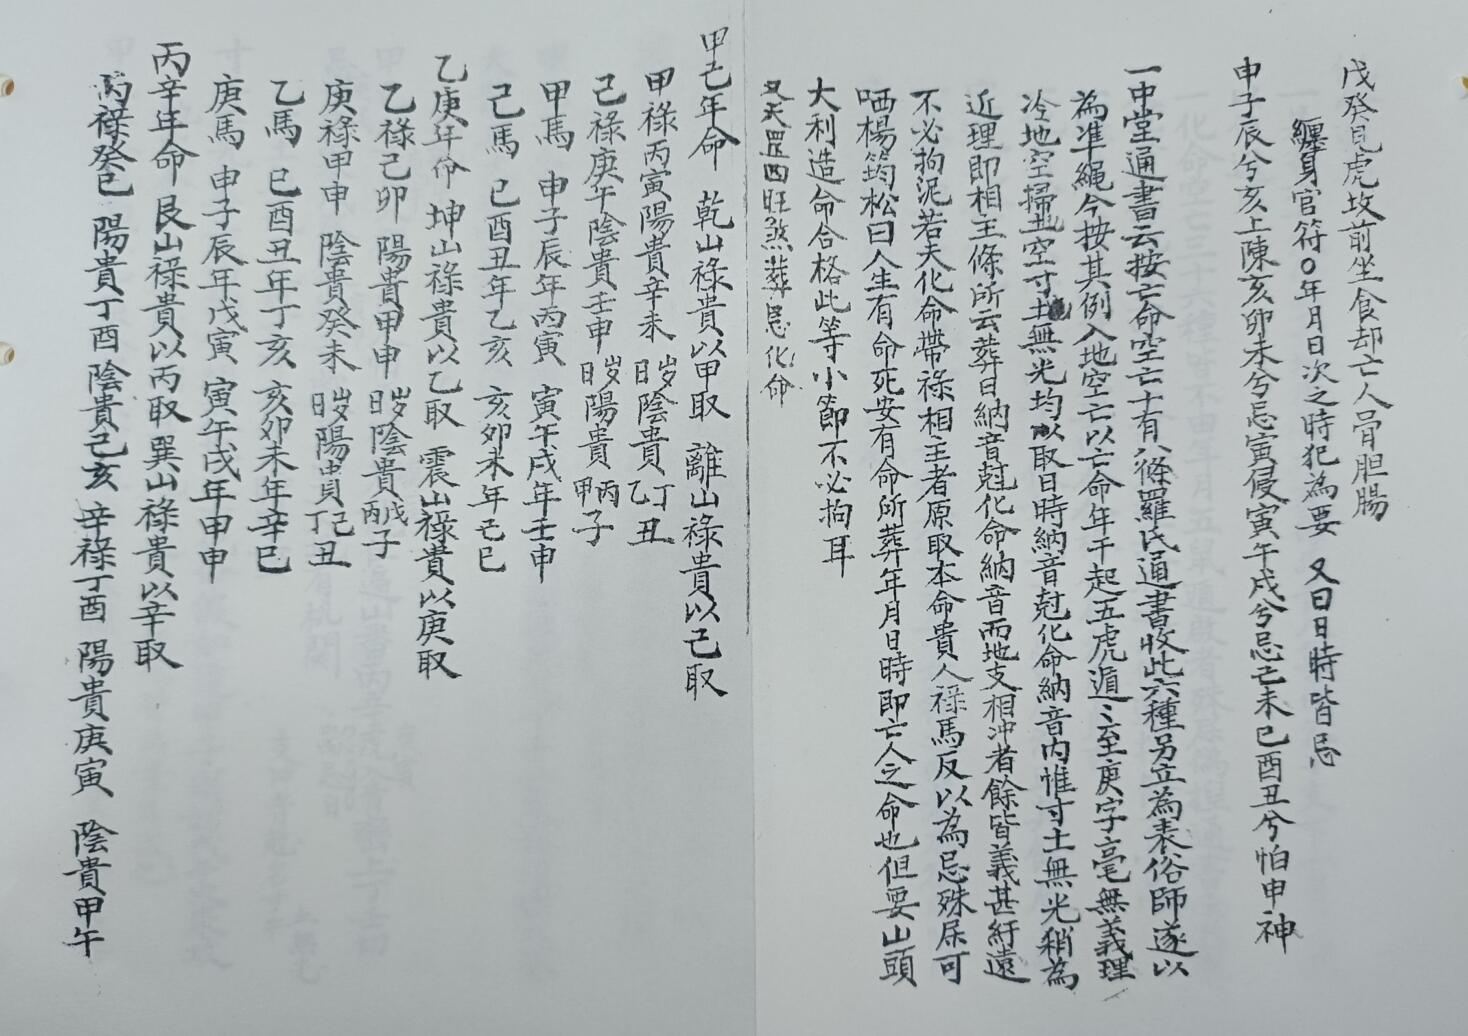 戊癸見虎坟前坐食却亡人骨胆腸
纏身官符○年月日次之時犯為要 又曰日時皆忌
申子辰兮亥上陳亥卯未兮忌寅侵寅午戌兮忌己未巳酉丑兮怕申神
一中堂通書云按亡命空亡十有八條羅氏通書收此六種另立為表俗師遂以
為準繩今按其例入地空亡以亡命年干起五虎遁〻至庚字毫無義理
冷地空掃地空寸土無光均以取日時納音尅化命納音内惟寸土無光稍為
近理即相主條所云葬日納音尅化命納音而地支相冲者餘皆義甚紆遠
不必拘泥若夫化命帶祿相主者原取本命貴人祿馬反以為忌殊屎可
哂楊筠松曰人生有命死安有命所葬年月日時即亡人之命也但要山頭
大利造命合格此等小節不必拘耳
又天罡四旺煞葬忌化命
甲己年命 乾山祿貴以甲取 離山祿貴以己取
甲祿丙寅陽貴辛未 歲日陰貴丁乙丑
己祿庚午陰貴壬申 歲日陽貴丙甲子
甲馬 申子辰年丙寅 寅午戌年壬申
己馬 巳酉丑年乙亥 亥卯未年己巳
乙庚年命 坤山祿貴以乙取 震山祿貴以庚取
乙祿己卯 陽貴甲申 歲日陰貴戊丙子
庚祿甲申 陰貴癸未 歲日陽貴己丁丑
乙馬 巳酉丑年丁亥 亥卯未年辛巳
庚馬 申子辰年戊寅 寅午戌年甲申
丙辛年命 艮山祿貴以丙取 巽山祿貴以辛取
丙祿癸巳 陽貴丁酉 陰貴己亥 辛祿丁酉 陽貴庚寅 陰貴甲午